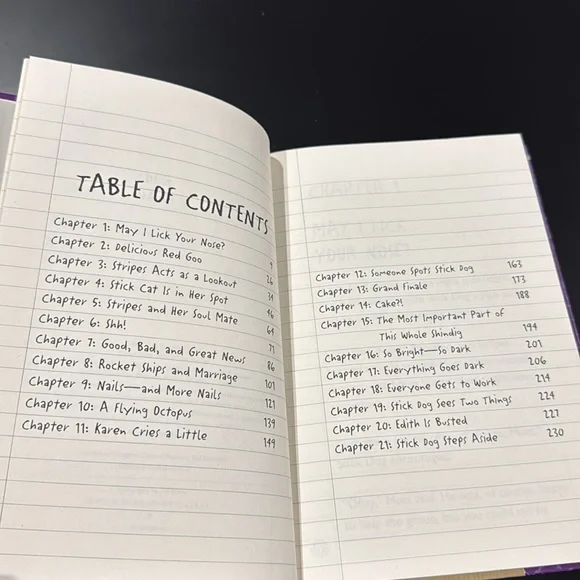 TABLE OF CONTENTS
Chapter 1: May I Lick Your Nose? 1
Chapter 2: Delicious Red Goo 26
Chapter 3: Stripes Acts as a Lookout 34
Chapter 4: Stick Cat Is in Her Spot 46
Chapter 5: Stripes and Her Soul Mate 64
Chapter 6: Shh! 71
Chapter 7: Good, Bad, and Great News 86
Chapter 8: Rocket Ships and Marriage 101
Chapter 9: Nails—and More Nails 121
Chapter 10: A Flying Octopus 139
Chapter 11: Karen Cries a Little 149
Chapter 12: Someone Spots Stick Dog 163
Chapter 13: Grand Finale 173
Chapter 14: Cake?! 188
Chapter 15: The Most Important Part of
This Whole Shindig 194
Chapter 16: So Bright—So Dark 201
Chapter 17: Everything Goes Dark 206
Chapter 18: Everyone Gets to Work 214
Chapter 19: Stick Dog Sees Two Things 224
Chapter 20: Edith Is Busted 227
Chapter 21: Stick Dog Steps Aside 230